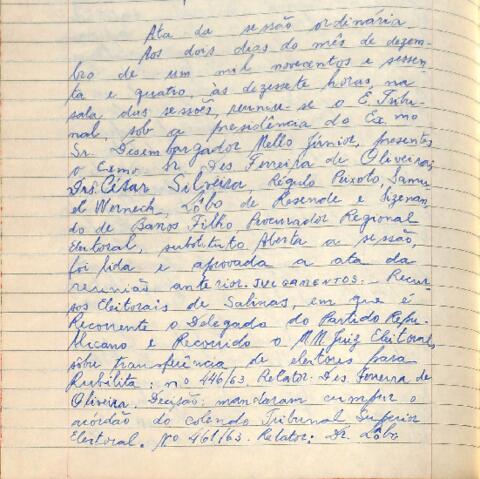 Ata da sessão ordinária
Aos dois dias do mês de dezem-
bro de um mil novecentos e sessen-
ta e quatro, às dezessete horas, na
sala das sessões, reuniu-se o E. Tribu-
nal, sob a presidência do Exmo
Sr. Desembargador Mello Júnior, presentes
o Exmo Sr. Des Ferreira de Oliveira,
Drs. César Silveira, Régulo Peixoto, Samu-
el Werneck, Lôbo de Resende e Sizenan-
do de Barros Filho, Procurador Regional
Eleitoral, substituto. Aberta a sessão,
foi lida e aprovada a ata da
reunião anterior. JULGAMENTOS. - Recur-
sos Eleitorais de Salinas, em que é
Recorrente o Delegado do Partido Repu-
blicano e Recorrido o MM Juiz Eleitoral,
sôbre transferência de eleitores para
Rubilita: nº 446/63. Relator: Des. Ferreira de
Oliveira. Decisão: mandaram cumprir o
acórdão do colendo Tribunal Superior
Eleitoral. Nº 461/63. Relator: Dr. Lôbo